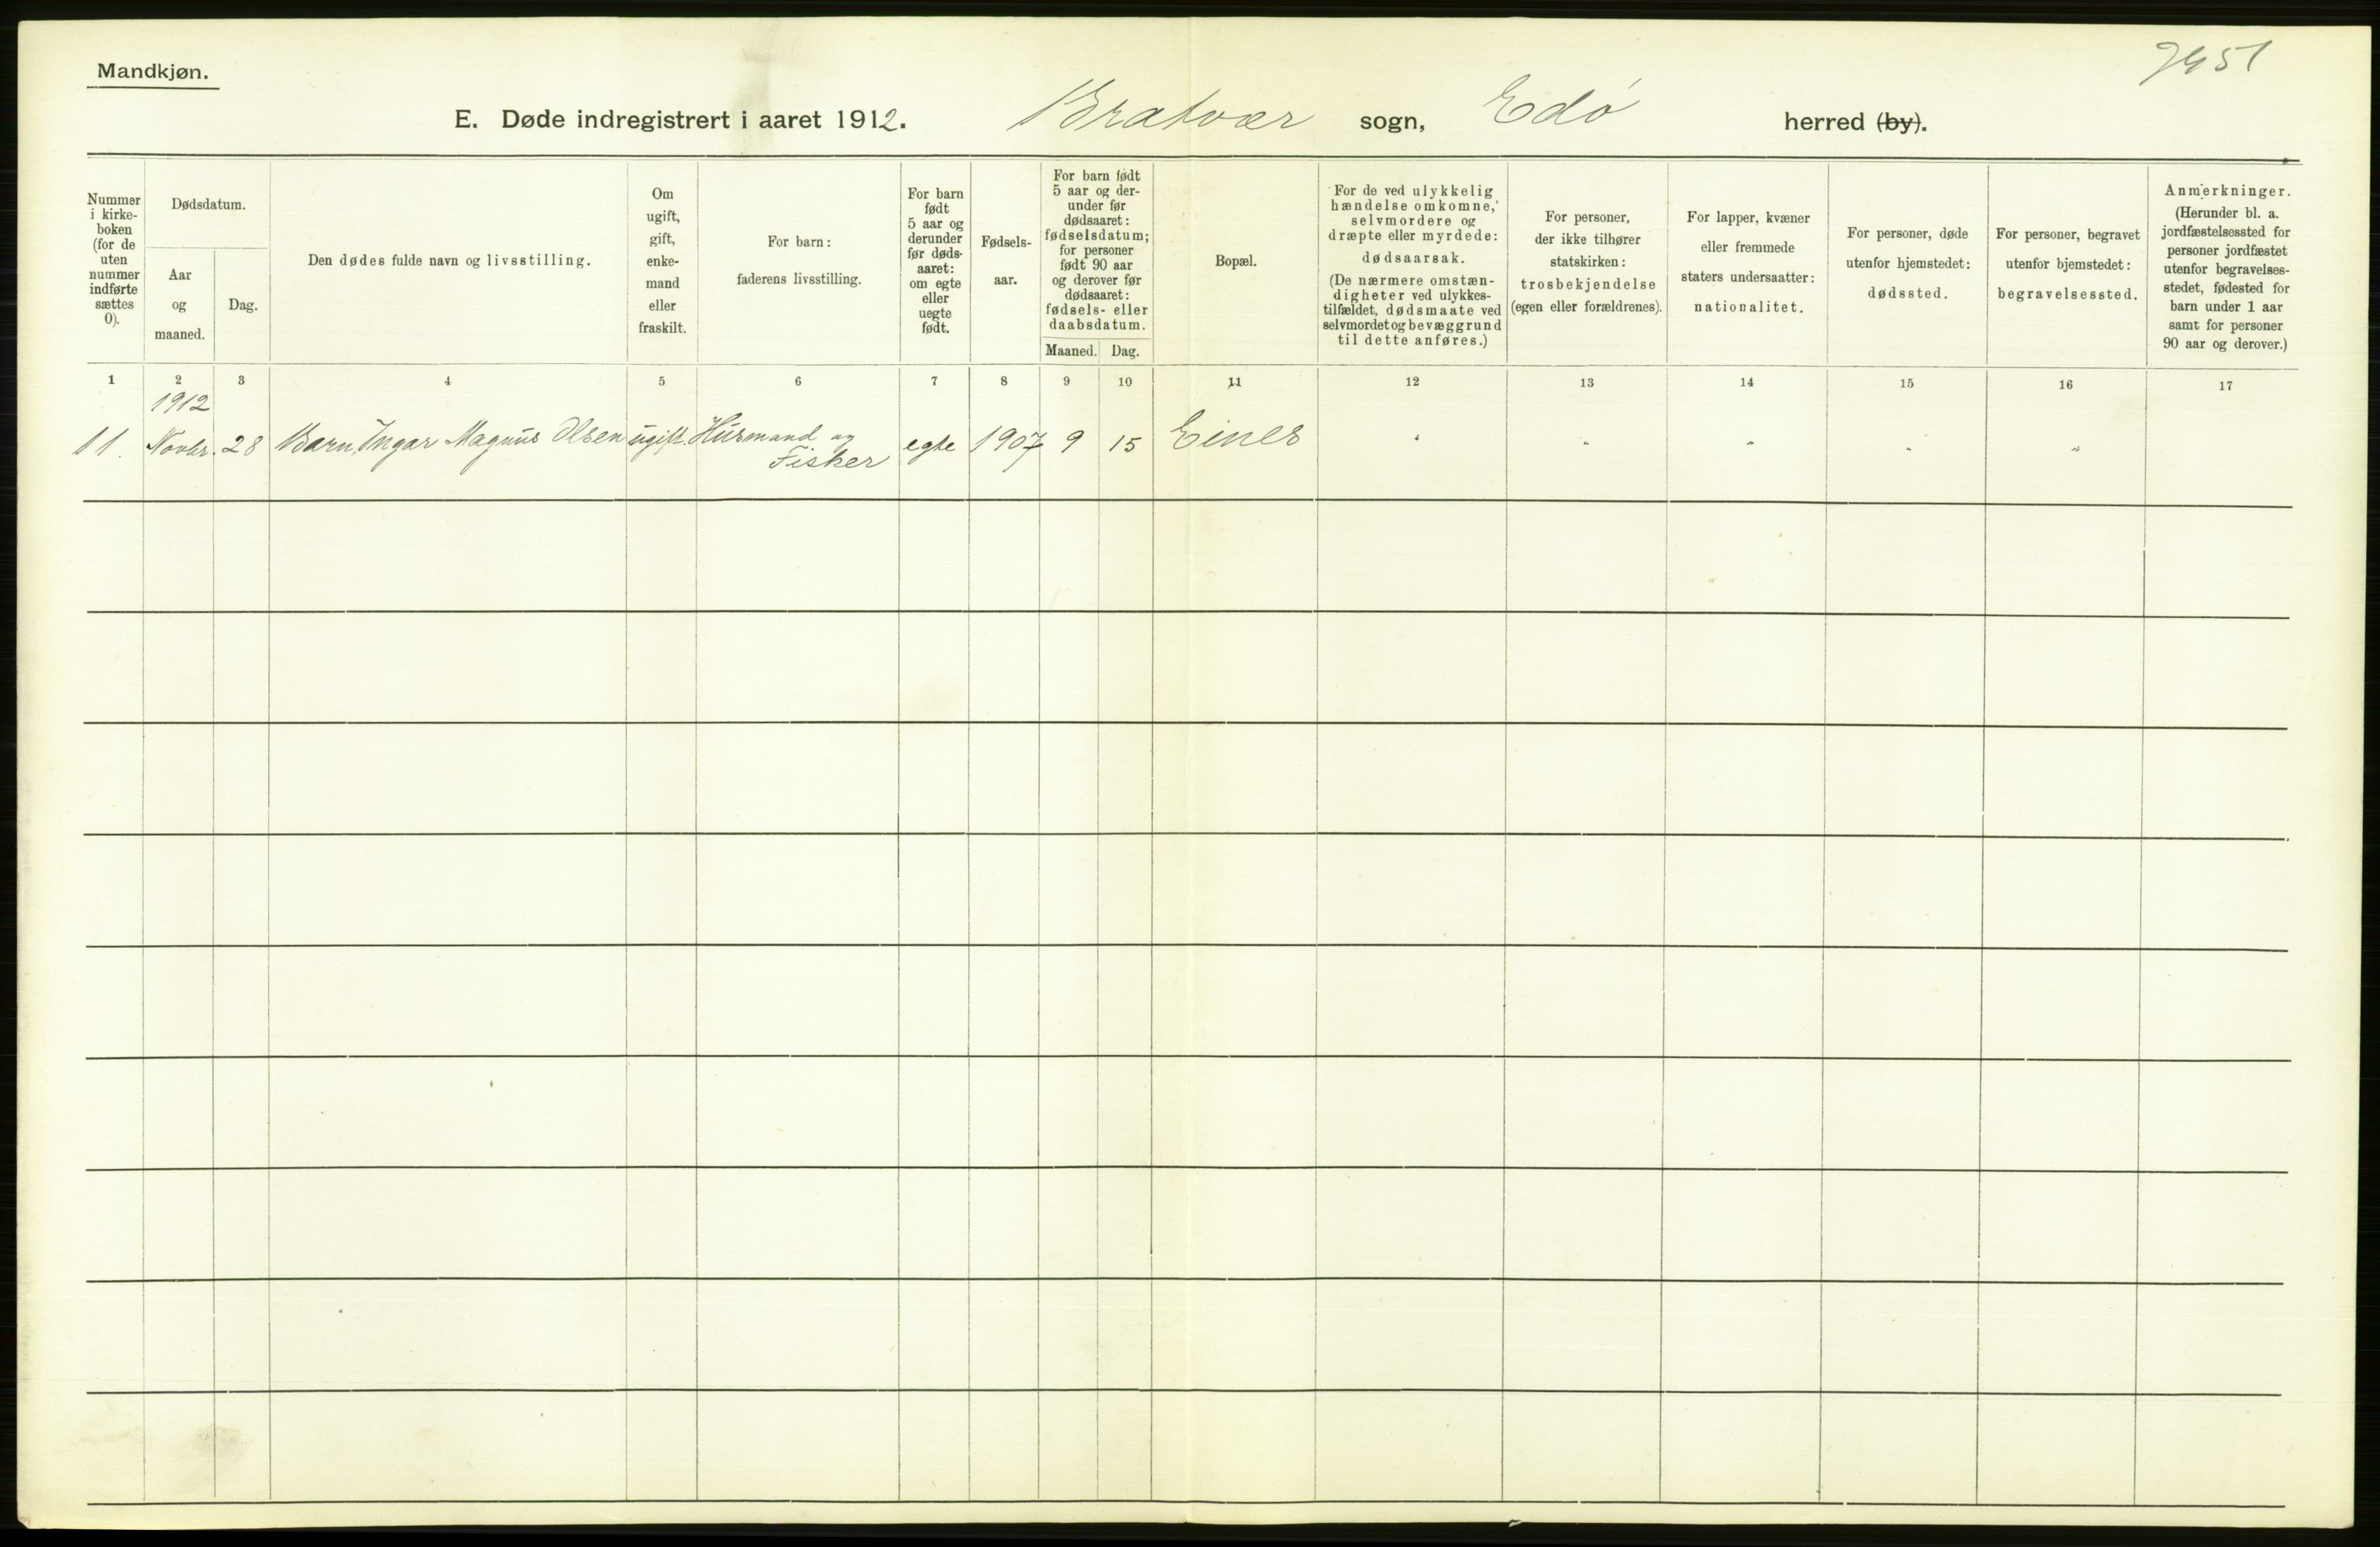 Mandkjøn.
7451
E. Døde indregistrert i aaret 1912. Bratvær sogn, Edö herred (by).
Nummer
i kirke-
boken
(for de
uten
nummer
indførte
sættes
0).
Dødsdatum.
Aar
og
maaned.
Dag.
Den dødes fulde navn og livsstilling.
Om
ugift,
gift,
enke-
mand
eller
fraskilt.
For barn:
faderens livsstilling.
For barn
født
5 aar og
derunder
før døds-
aaret:
om egte
eller
uegte
født.
Fødsels-
aar.
For barn født
5 aar og der-
under før
dødsaaret:
fødselsdatum;
for personer
født 90 aar
og derover før
dødsaaret:
fødsels- eller
daabsdatum.
Maaned. Dag.
Bopæl.
For de ved ulykkelig
hændelse omkomne,
selvmordere og
dræpte eller myrdede:
dødsaarsak.
(De nærmere omstæn-
digheter ved ulykkes-
tilfældet, dødsmaate ved
selvmordet og bevæggrund
til dette anføres.)
For personer,
der ikke tilhører
statskirken:
trosbekjendelse
(egen eller forældrenes).
For lapper, kvæner
eller fremmede
staters undersaatter:
nationalitet.
For personer, døde
utenfor hjemstedet:
dødssted.
For personer, begravet
utenfor bjemstedet:
begravelsessted.
Anmerkninger.
(Herunder bl. a.
jordfæstelsessted for
personer jordfæstet
utenfor begravelses-
stedet, fødested for
barn under 1 aar
samt for personer
90 aar og derover.)
1 2 3 4 5 6 7 8 9 10 11 12 13 14 15 16 17
1912
11. Novbr. 28 Barn, Ingar Magnus Olsen ugift Husmand og egte 1907 9 15 Eines " " " " "
Fisker